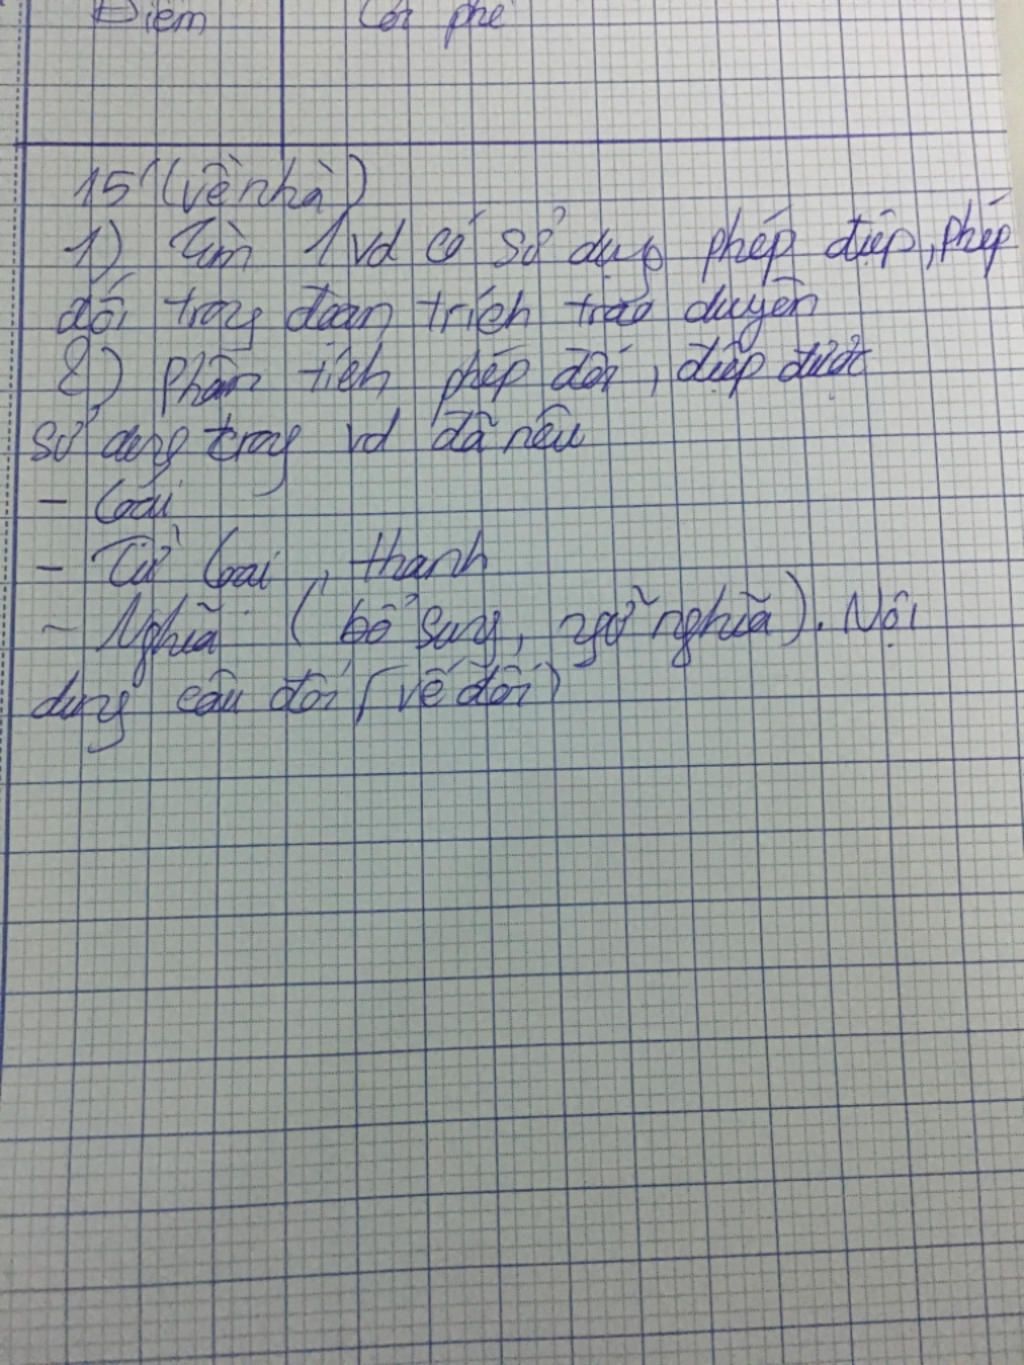 Điểm Lời phê
15' (về nhà)
1) Tìm 1 vd có sử dụng phép điệp, phép
đối trong đoạn trích trao duyên
2) Phân tích phép đối, điệp được
sử dụng trong vd đã nêu
- Loại
- Từ loại, thanh
- Nghĩa (bổ sung, ngữ nghĩa). Nội
dung câu đối (vế đối)